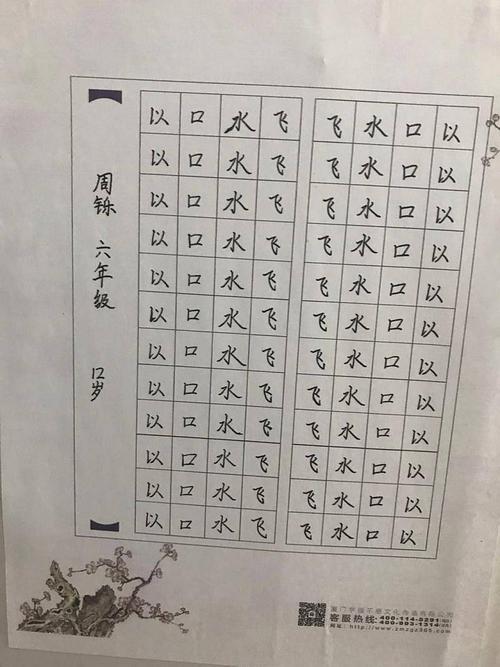 周铄 六年级 12岁
以 口 水 飞 飞 水 口 以
以 口 水 飞 飞 水 口 以
以 口 水 飞 飞 水 口 以
以 口 水 飞 飞 水 口 以
以 口 水 飞 飞 水 口 以
以 口 水 飞 飞 水 口 以
以 口 水 飞 飞 水 口 以
以 口 水 飞 飞 水 口 以
以 口 水 飞 飞 水 口 以
以 口 水 飞 飞 水 口 以
以 口 水 飞 飞 水 口 以
以 口 水 飞 飞 水 口 以
客服热线: 400-114-5291
400-903-1314